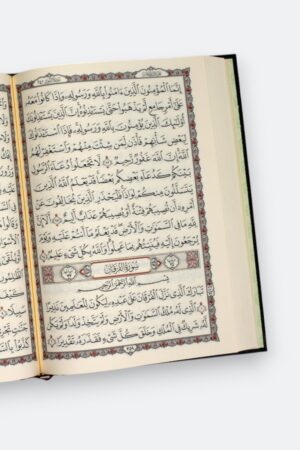 إِنَّمَا ٱلْمُؤْمِنُونَ ٱلَّذِينَ ءَامَنُوا۟ بِٱللَّهِ وَرَسُولِهِۦ وَإِذَا كَانُوا۟ مَعَهُۥ
عَلَىٰٓ أَمْرٍ جَامِعٍ لَّمْ يَذْهَبُوا۟ حَتَّىٰ يَسْتَـْٔذِنُوهُ إِنَّ ٱلَّذِينَ يَسْتَـْٔذِنُونَكَ
أُو۟لَـٰٓئِكَ ٱلَّذِينَ يُؤْمِنُونَ بِٱللَّهِ وَرَسُولِهِۦ فَإِذَا ٱسْتَـْٔذَنُوكَ
لِبَعْضِ شَأْنِهِمْ فَأْذَن لِّمَن شِئْتَ مِنْهُمْ وَٱسْتَغْفِرْ لَهُمُ
ٱللَّهَ إِنَّ ٱللَّهَ غَفُورٌ رَّحِيمٌ ٦٢ لَّا تَجْعَلُوا۟ دُعَآءَ ٱلرَّسُولِ
بَيْنَكُمْ كَدُعَآءِ بَعْضِكُم بَعْضًا قَدْ يَعْلَمُ ٱللَّهُ ٱلَّذِينَ
يَتَسَلَّلُونَ مِنكُمْ لِوَاذًا فَلْيَحْذَرِ ٱلَّذِينَ يُخَالِفُونَ عَنْ
أَمْرِهِۦٓ أَن تُصِيبَهُمْ فِتْنَةٌ أَوْ يُصِيبَهُمْ عَذَابٌ أَلِيمٌ ٦٣ أَلَآ إِنَّ لِلَّهِ
مَا فِى ٱلسَّمَـٰوَٰتِ وَٱلْأَرْضِ قَدْ يَعْلَمُ مَآ أَنتُمْ عَلَيْهِ وَيَوْمَ
يُرْجَعُونَ إِلَيْهِ فَيُنَبِّئُهُم بِمَا عَمِلُوا۟ وَٱللَّهُ بِكُلِّ شَىْءٍ عَلِيمٌۢ ٦٤
سُورَةُ الفُرْقَانِ
بِسْمِ ٱللَّهِ ٱلرَّحْمَـٰنِ ٱلرَّحِيمِ
تَبَارَكَ ٱلَّذِى نَزَّلَ ٱلْفُرْقَانَ عَلَىٰ عَبْدِهِۦ لِيَكُونَ لِلْعَـٰلَمِينَ نَذِيرًا ١
ٱلَّذِى لَهُۥ مُلْكُ ٱلسَّمَـٰوَٰتِ وَٱلْأَرْضِ وَلَمْ يَتَّخِذْ وَلَدًا وَلَمْ يَكُن
لَّهُۥ شَرِيكٌ فِى ٱلْمُلْكِ وَخَلَقَ كُلَّ شَىْءٍ فَقَدَّرَهُۥ تَقْدِيرًا ٢
٣٥٩